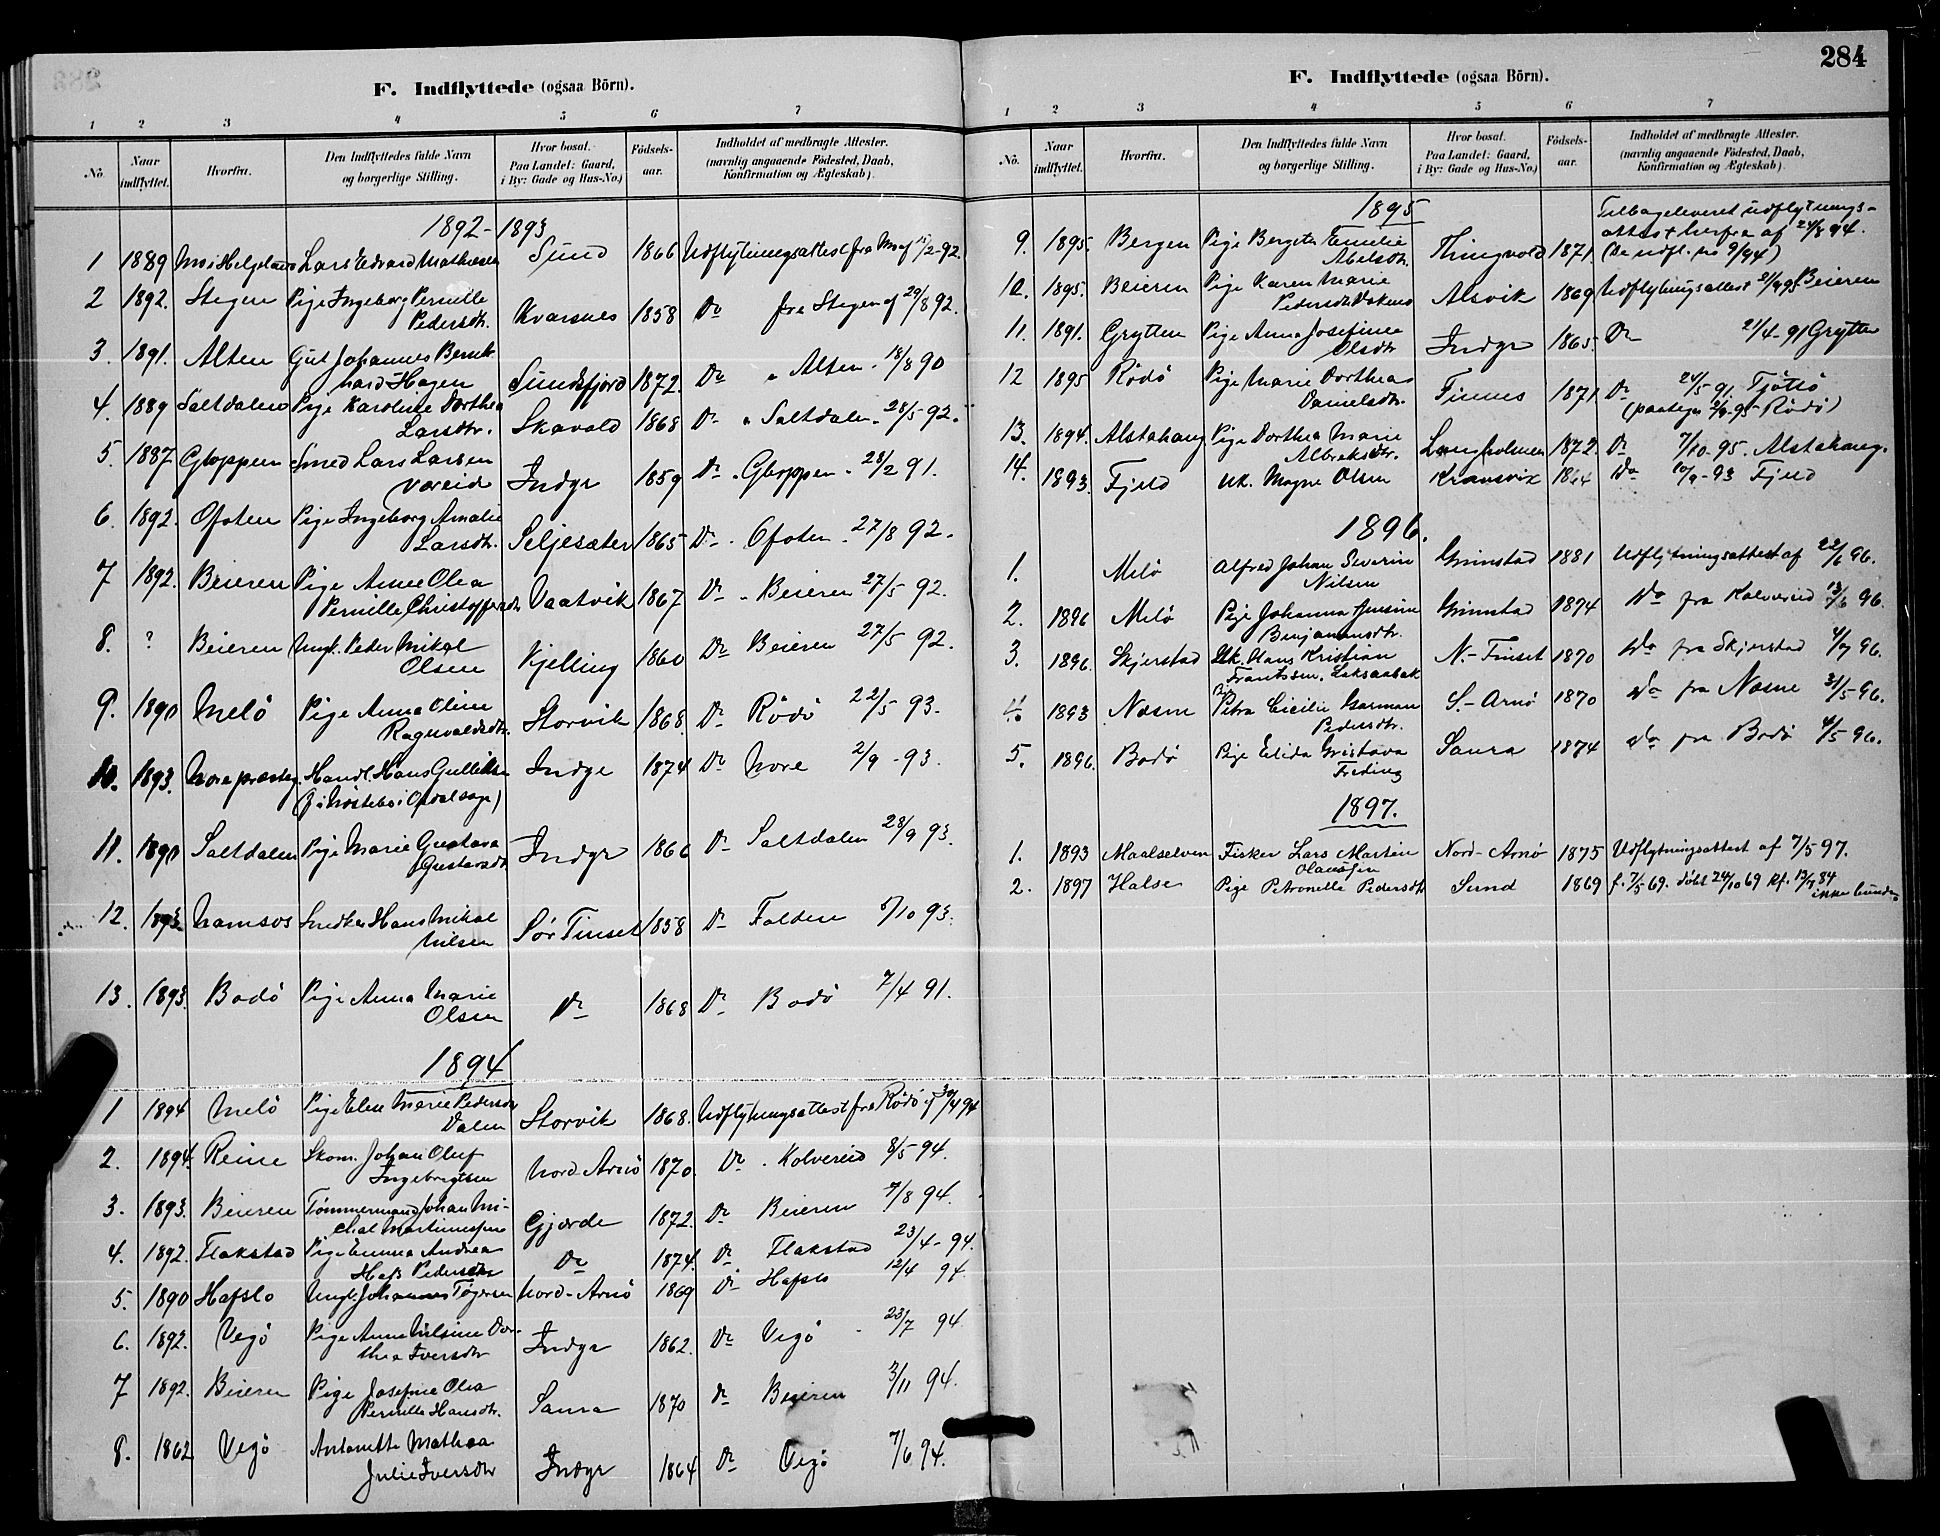 284
F. Indflyttede (ogsaa Börn).
1 2 3 4 5 6 7
No. Naar indflyttet. Hvorfra. Den Indflyttedes fulde Navn og borgerlige Stilling. Hvor bosat. Paa Landet: Gaard, i By: Gade og Hus-No.) Födsels-aar. Indholdet af medbragte Attester. (navnlig angaaende Födested, Daab, Konfirmation og Ægteskab).
1892-1893
1 1889 Mo i Helgeland Lars Edvard Mathisen Sund 1866 Udflytningsattest fra Mo af 2-92.
2 1892. Stegen Pige Ingeborg Pernille Kvarsnes 1858 Do fra Stegen af 29/8 92.
Pedersdtr.
3. 1891. Alten Gut Johannes Bernt- Sundsfjord 1872. Do " Alten. 18/8 90
hard Hagen
4. 1889 Saltdalen Pige Karoline Dorthea Skavold 1868 Do " Saltdalen. 28/5-92.
Larsdtr.
5. 1887 Gloppen Smed Lars Larsen Indyr 1859 Do . Gloppen. 28/2 91.
Vareide
6. 1892. Ofoten Pige Ingeborg Amalie Seljesæter 1865 Do . Ofoten. 27/8 92.
Larsdtr.
7 1892. Beieren Pige Anne Olea Vaatvik 1867 Do . Beieren 27/5 92.
Pernille Christoffersdtr
8. ? Beieren Ungk. Peder Mikal Kjelling 1860 Do Beieren 27/5 92.
Olsen
9. 1890 Melö Pige Anna Oline Storvik 1868. Do Rödö 22/5-93.
Ragnvaldsdtr.
10. 1893. Nore præsteg. Handl. Hans Gulliksen Indyr 1874 Do Nore 2/9-93.
11. 1890 Saltdalen Pige Marie Gustava Indyr 1866 Do Saltdalen 28/9 93.
Gustavsdtr
12. 1893 Namsos Snedker Hans Mikal Sör Finset 1858 Do Folden 5/10 93.
Nilsen
13. 1893. Bodö Pige Anna Marie Do 1868 Do Bodö 7/4 91.
Olsen
1894
1 1894 Melö Pige Elen Marie Pedersdtr Storvik 1868. Udflytningsattest fra Rödö af 30/4 94
Dalen
2. 1894. Reine Skom. Johan Oluf Nord-Arnö 1870. Do . Kolvereid 8/5-94.
Ingebregtsen
3. 1893. Beieren Tömmermand Johan Mi- Gjærde 1872. Do Beieren 7/8 94.
chal Martinussen
4. 1892. Flakstad Pige Emma Andrea Do 1874. Do Flakstad 23/4-94.
Pedersdtr
5. 1890 Hafslo Ungk. Johannes Tögersen Nord-Arnö 1869 Do Hafslo 12/4 94.
6. 1892. Vegö Pige Anne Nilsine Dor- Indyr 1862. Do Vegö 23/7 94
thea Iversdtr
7 1892. Beieren Pige Josefine Olea Saura 1870 Do Beieren 3/11 94.
Pernille Hansdtr.
8. 1862 Vegö Antonette Mathea Indyr 1864 Do Vegö 7/6 94.
Julie Iversdtr
F. Indflyttede (ogsaa Börn).
1 2 3 4 5 6 7
No. Naar indflyttet. Hvorfra. Den Indflyttedes fulde Navn og borgerlige Stilling. Hvor bosat. Paa Landet: Gaard, i By: Gade og Hus-No.) Födsels-aar. Indholdet af medbragte Attester. (navnlig angaaende Födested, Daab, Konfirmation og Ægteskab).
1895
Tilbageleveret udflytnings-
attest herfra af 24/8 94.
9. 1895. Bergen Pige Bergitte Emilie Thingvold 1871 (Se udfl. no 9/94)
Abelsdtr.
10. 1895. Beieren Pige Karen Marie Alsvik 1869 Udflytningsattest Beieren
Pedersdtr
11. 1891. Grytten Pige Anna Josefine Indyr 1865. Do 21/4-91 Grytten
Olsdtr
12 1895 Rödö Pige Marie Dorthea Finnes 1871 Do 24/5-91. Tjöttö
Danielsdtr. (paategn. Rödö)
13. 1894. Alstahaug Pige Dorthea Marie Langholmen 1872. Do 7/10-95. Alstahaug.
Albrektsdtr.
14. 1893. Fjeld Uk. Mogne Olsen Kraasvik 1864 Do 10/9-93 Fjeld
1896.
1. Melö Alfred Johan Severin Grimstad 1881 Udflytningsattest af 22/6 96.
Nilsen
2. 1896 Melö Pige Johanna Jensine Grimstad 1874 Do fra Kolvereid 13/6 96.
Benjaminsdtr.
3. 1896. Skjerstad Uk. Hans Kristian N.-Finset 1870 Do fra Skjerstad 4/7 96.
Frantssen.
4. 1893 Nesne Pige Petra Cicilie S.-Arnö 1870 Do fra Nesne 31/5-96.
Pedersdtr.
5. 1896. Bodö Pige Elida Gustava Saura 1874 Do fra Bodö 4/5 96.
Freding
1897.
1. 1893 Maalselven Fisker Lars Martin Nord-Arnö 1875 Udflytningsattest af 7/5 97.
2. 1897 Halse Pige Petronelle Pedersdtr Sund 1869 f. 7/5 69. döbt 24/10 69 kf. 13/7 84